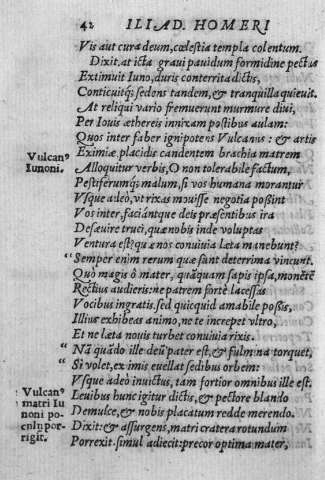 42 ILIAD. HOMERI
Vis aut cura deum, cœlestia templa colentum.
Dixit. at icta graui pauidum formidine pectus
Extimuit Iuno, duris conterrita dictis,
Conticuitq; sedens tandem, & tranquilla quieuit.
At reliqui vario fremuerunt murmure diui,
Per Iouis æthereis innixam postibus aulam:
Quos inter faber ignipotens Vulcanus: & artis
Vulcanꝰ
Iunoni.
Eximiæ placidis candentem brachia matrem
Alloquitur verbis, O non tolerabile factum,
Pestiferumq; malum, si vos humana morantur
Vsque adeo, vt rixas mouisse negotia possint
Vos inter, faciántque deis præsentibus ira
Desæuire truci, quæ nobis inde voluptas
Ventura est? quæ nos conuiuia læta manebunt?
“Semper enim rerum quæ sunt deterrima vincunt.
Quò magis ô mater, quãquam sapis ipsa, monẽte
Rectius audieris: ne patrem fortè lacessas
Vocibus ingratis. sed quicquid amabile possis,
Illius exhibeas animo, ne te increpet vltro,
Et ne læta noui s turbet conuiuia rixis.
“ Nã quãdo ille deũ pater est, & fulmina torquet,
“ Si volet, ex imis euellat sedibus orbem:
Vsque adeò inuictus, tam fortior omnibus ille est.
Vulcanꝰ
matri Iu
noni po-
culũ por-
rigit.
Leuibus hunc igitur dictis, & pectore blando
Demulce, & nobis placatum redde merendo.
Dixit: & assurgens, matri cratera rotundum
Porrexit. simul adiecit: precor optima mater,